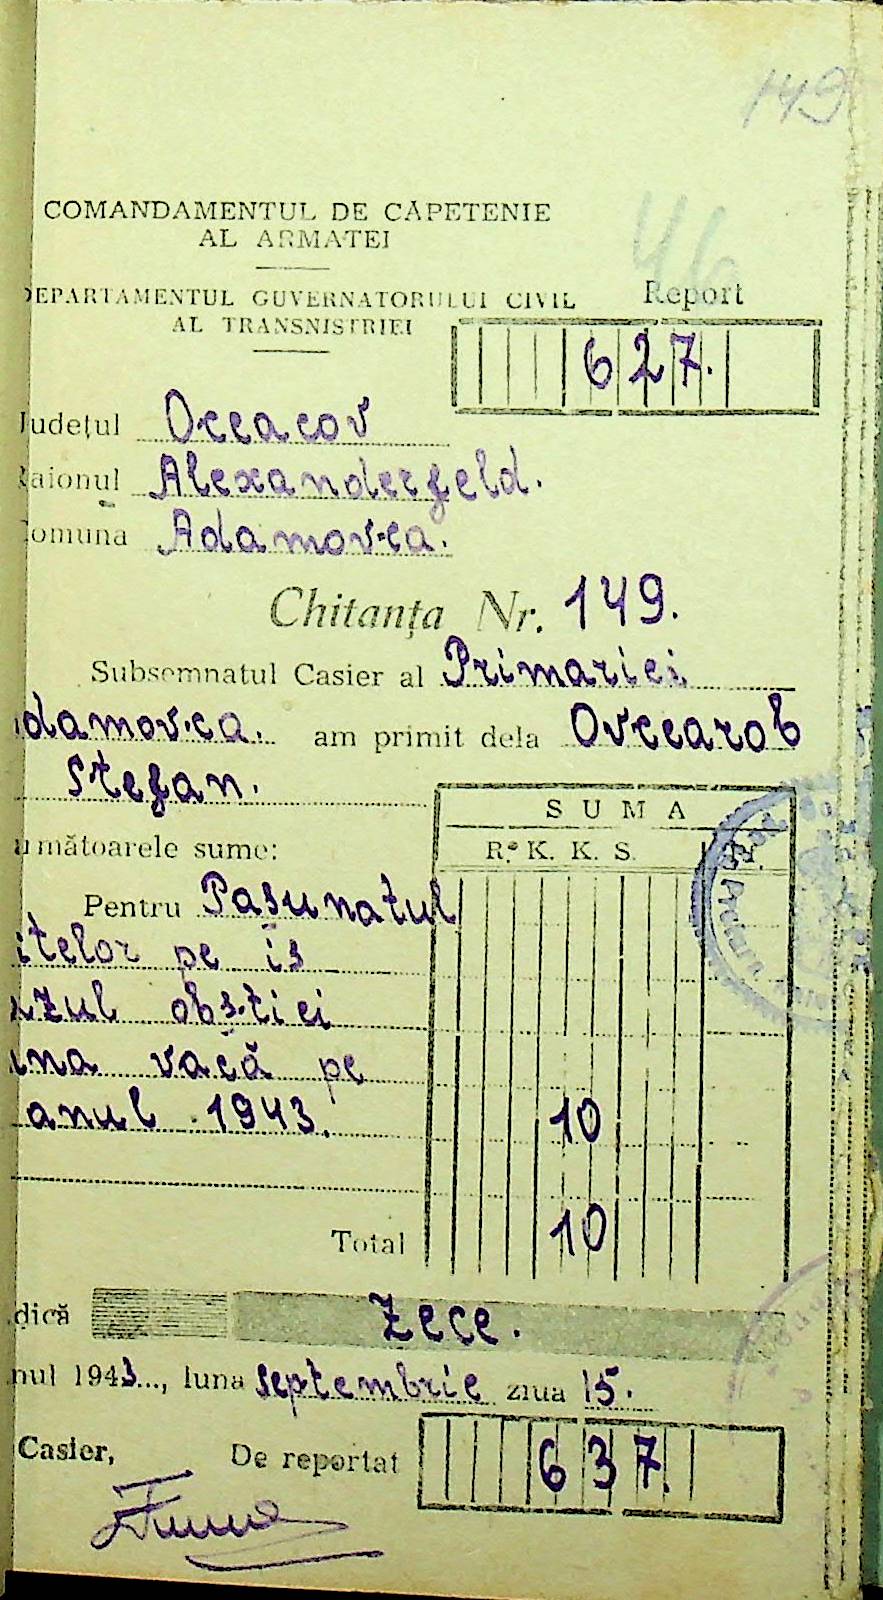 149
46
COMANDAMENTUL DE CĂPETENIE
AL ARMATEI
DEPARTAMENTUL GUVERNATORULUI CIVIL
AL TRANSNISTRIEI
Report
627.
Județul Oceacov
Raionul Alexanderfeld.
Comuna Adamovca.
Chitanța Nr. 149.
Subsemnatul Casier al Primariei
Adamovca. am primit dela Ovcearob
Stefan.
SUMA
următoarele sume:
R. K. K. S.
Pentru Pasunatul
itelor pe is
azul obs.tiei
una vacă pe
anul 1943. 10
Total 10
dică Zece.
nul 1943..., luna Septembrie ziua 15.
Casier, De reportat 637.